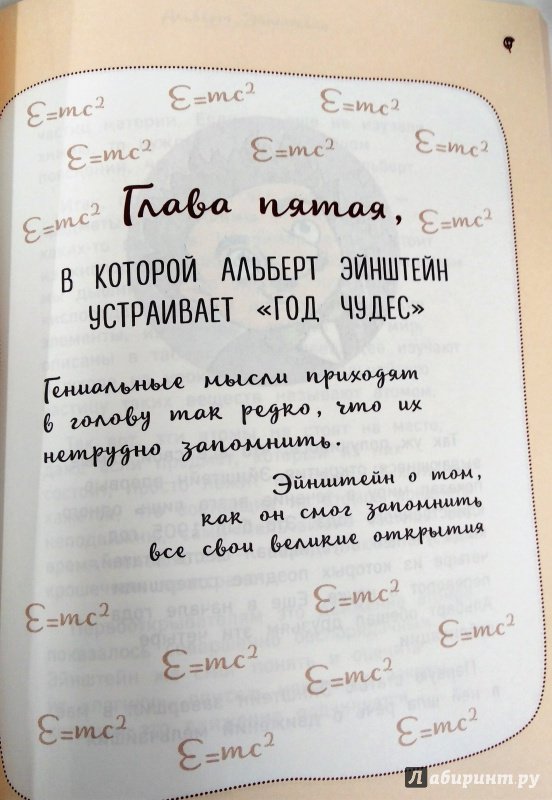 E=mc²
E=mc²
E=mc²
E=mc²
E=mc²
E=mc²
E=mc²
E=mc²
Глава пятая,
В КОТОРОЙ АЛЬБЕРТ ЭЙНШТЕЙН
УСТРАИВАЕТ «ГОД ЧУДЕС»
Гениальные мысли приходят
в голову так редко, что их
нетрудно запомнить.
Эйнштейн о том,
как он смог запомнить
все свои великие открытия
E=mc²
E=mc²
E=mc²
E=mc²
E=mc²
E=mc²
E=mc²
E=mc²
Лабиринт.ру